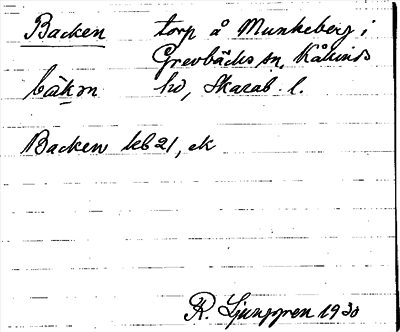 Backen torp å Munkeberg i
Grevbäcks sn, Kåkinds
bàkɱ hd, Skarab. l.
Backen kb 21, ek
R. Ljunggren 1930